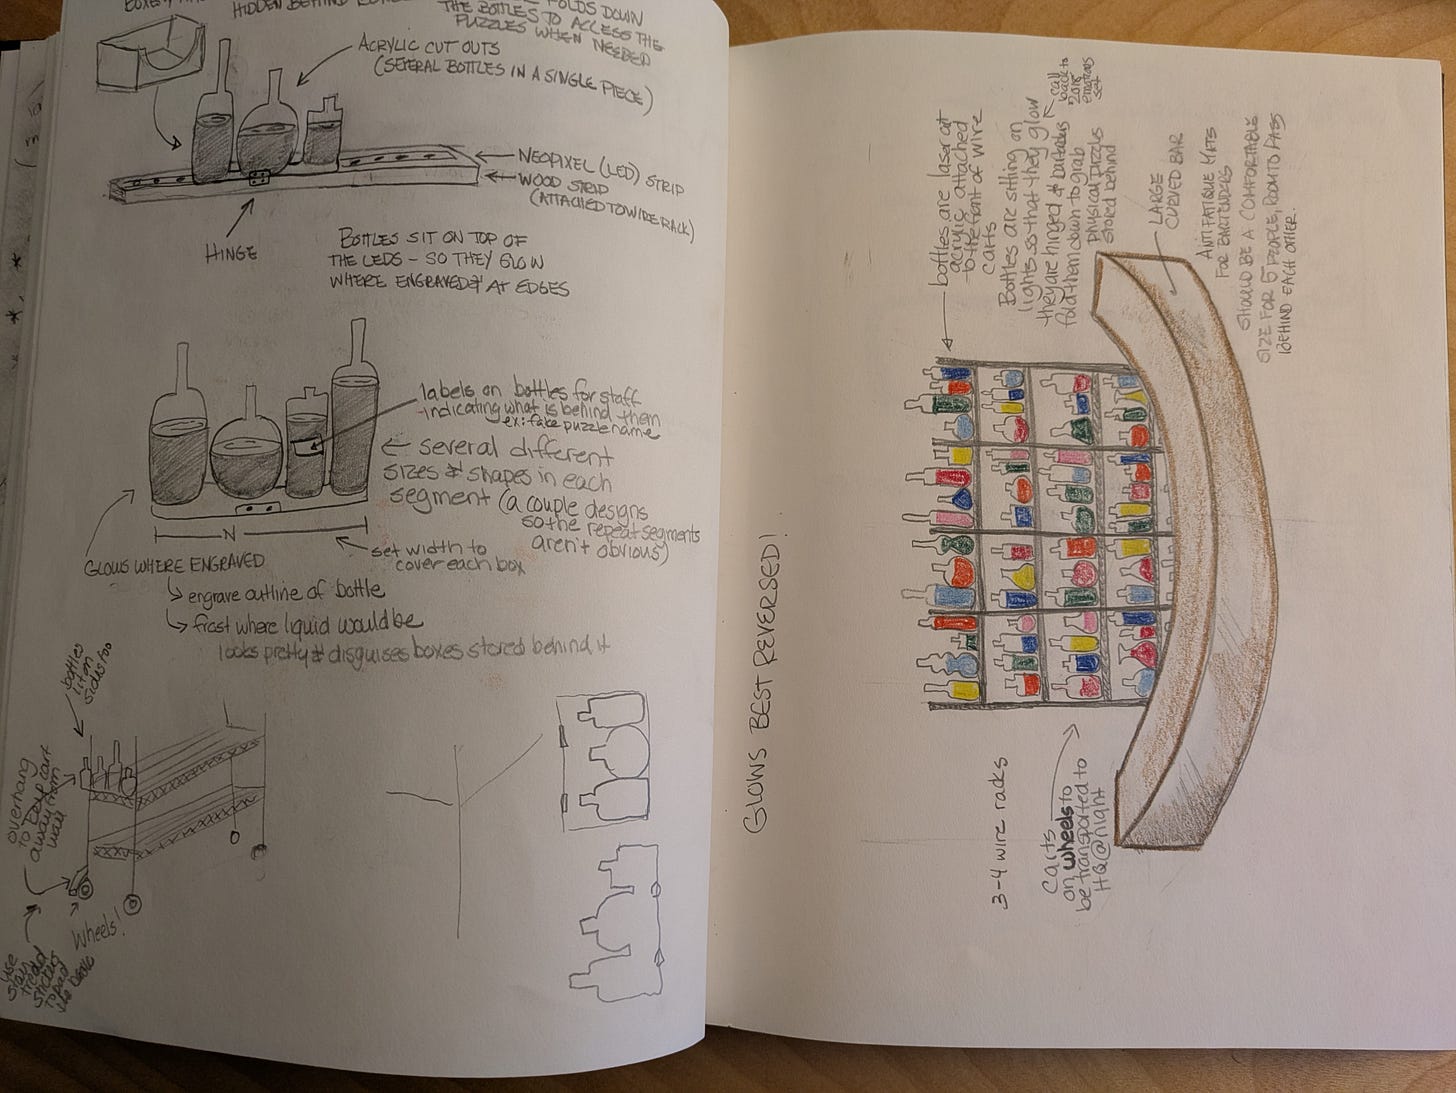 HIDDEN BEHIND
FOLDS DOWN
THE BOTTLES TO ACCESS THE
PUZZLES WHEN NEEDED
ACRYLIC CUT OUTS
(SEVERAL BOTTLES IN A SINGLE PIECE)
NEOPIXEL (LED) STRIP
WOOD STRIP
(ATTACHED TO WIRE RACK)
HINGE
BOTTLES SIT ON TOP OF
THE LEDS - SO THEY GLOW
WHERE ENGRAVED & AT EDGES
labels on bottles for staff
indicating what is behind them
ex: fake puzzle name
several different
sizes & shapes in each
segment (a couple designs
so the repeat segments
aren't obvious)
N
set width to
cover each box
GLOWS WHERE ENGRAVED
engrave outline of bottle
frost where liquid would be
looks pretty & disguises boxes stored behind it
bottles
lit on
sides too
overhang
to keep cart
away from
wall
Wheels!
use
to pad
GLOWS BEST REVERSED!
bottles are laser cut
acrylic attached
to the front of wire
carts
Bottles are sitting on
lights so that they glow
they are hinged & bartenders
fold them down to grab
physical puzzles
stored behind
call
back to
2018
emotions
set
LARGE
CURVED BAR
ANTI FATIGUE MATS
FOR BARTENDERS
SHOULD BE A COMFORTABLE
SIZE FOR 5 PEOPLE, ROOM TO PASS
BEHIND EACH OTHER.
3-4 wire racks
Carts
on wheels to
be transported to
HQ @ night